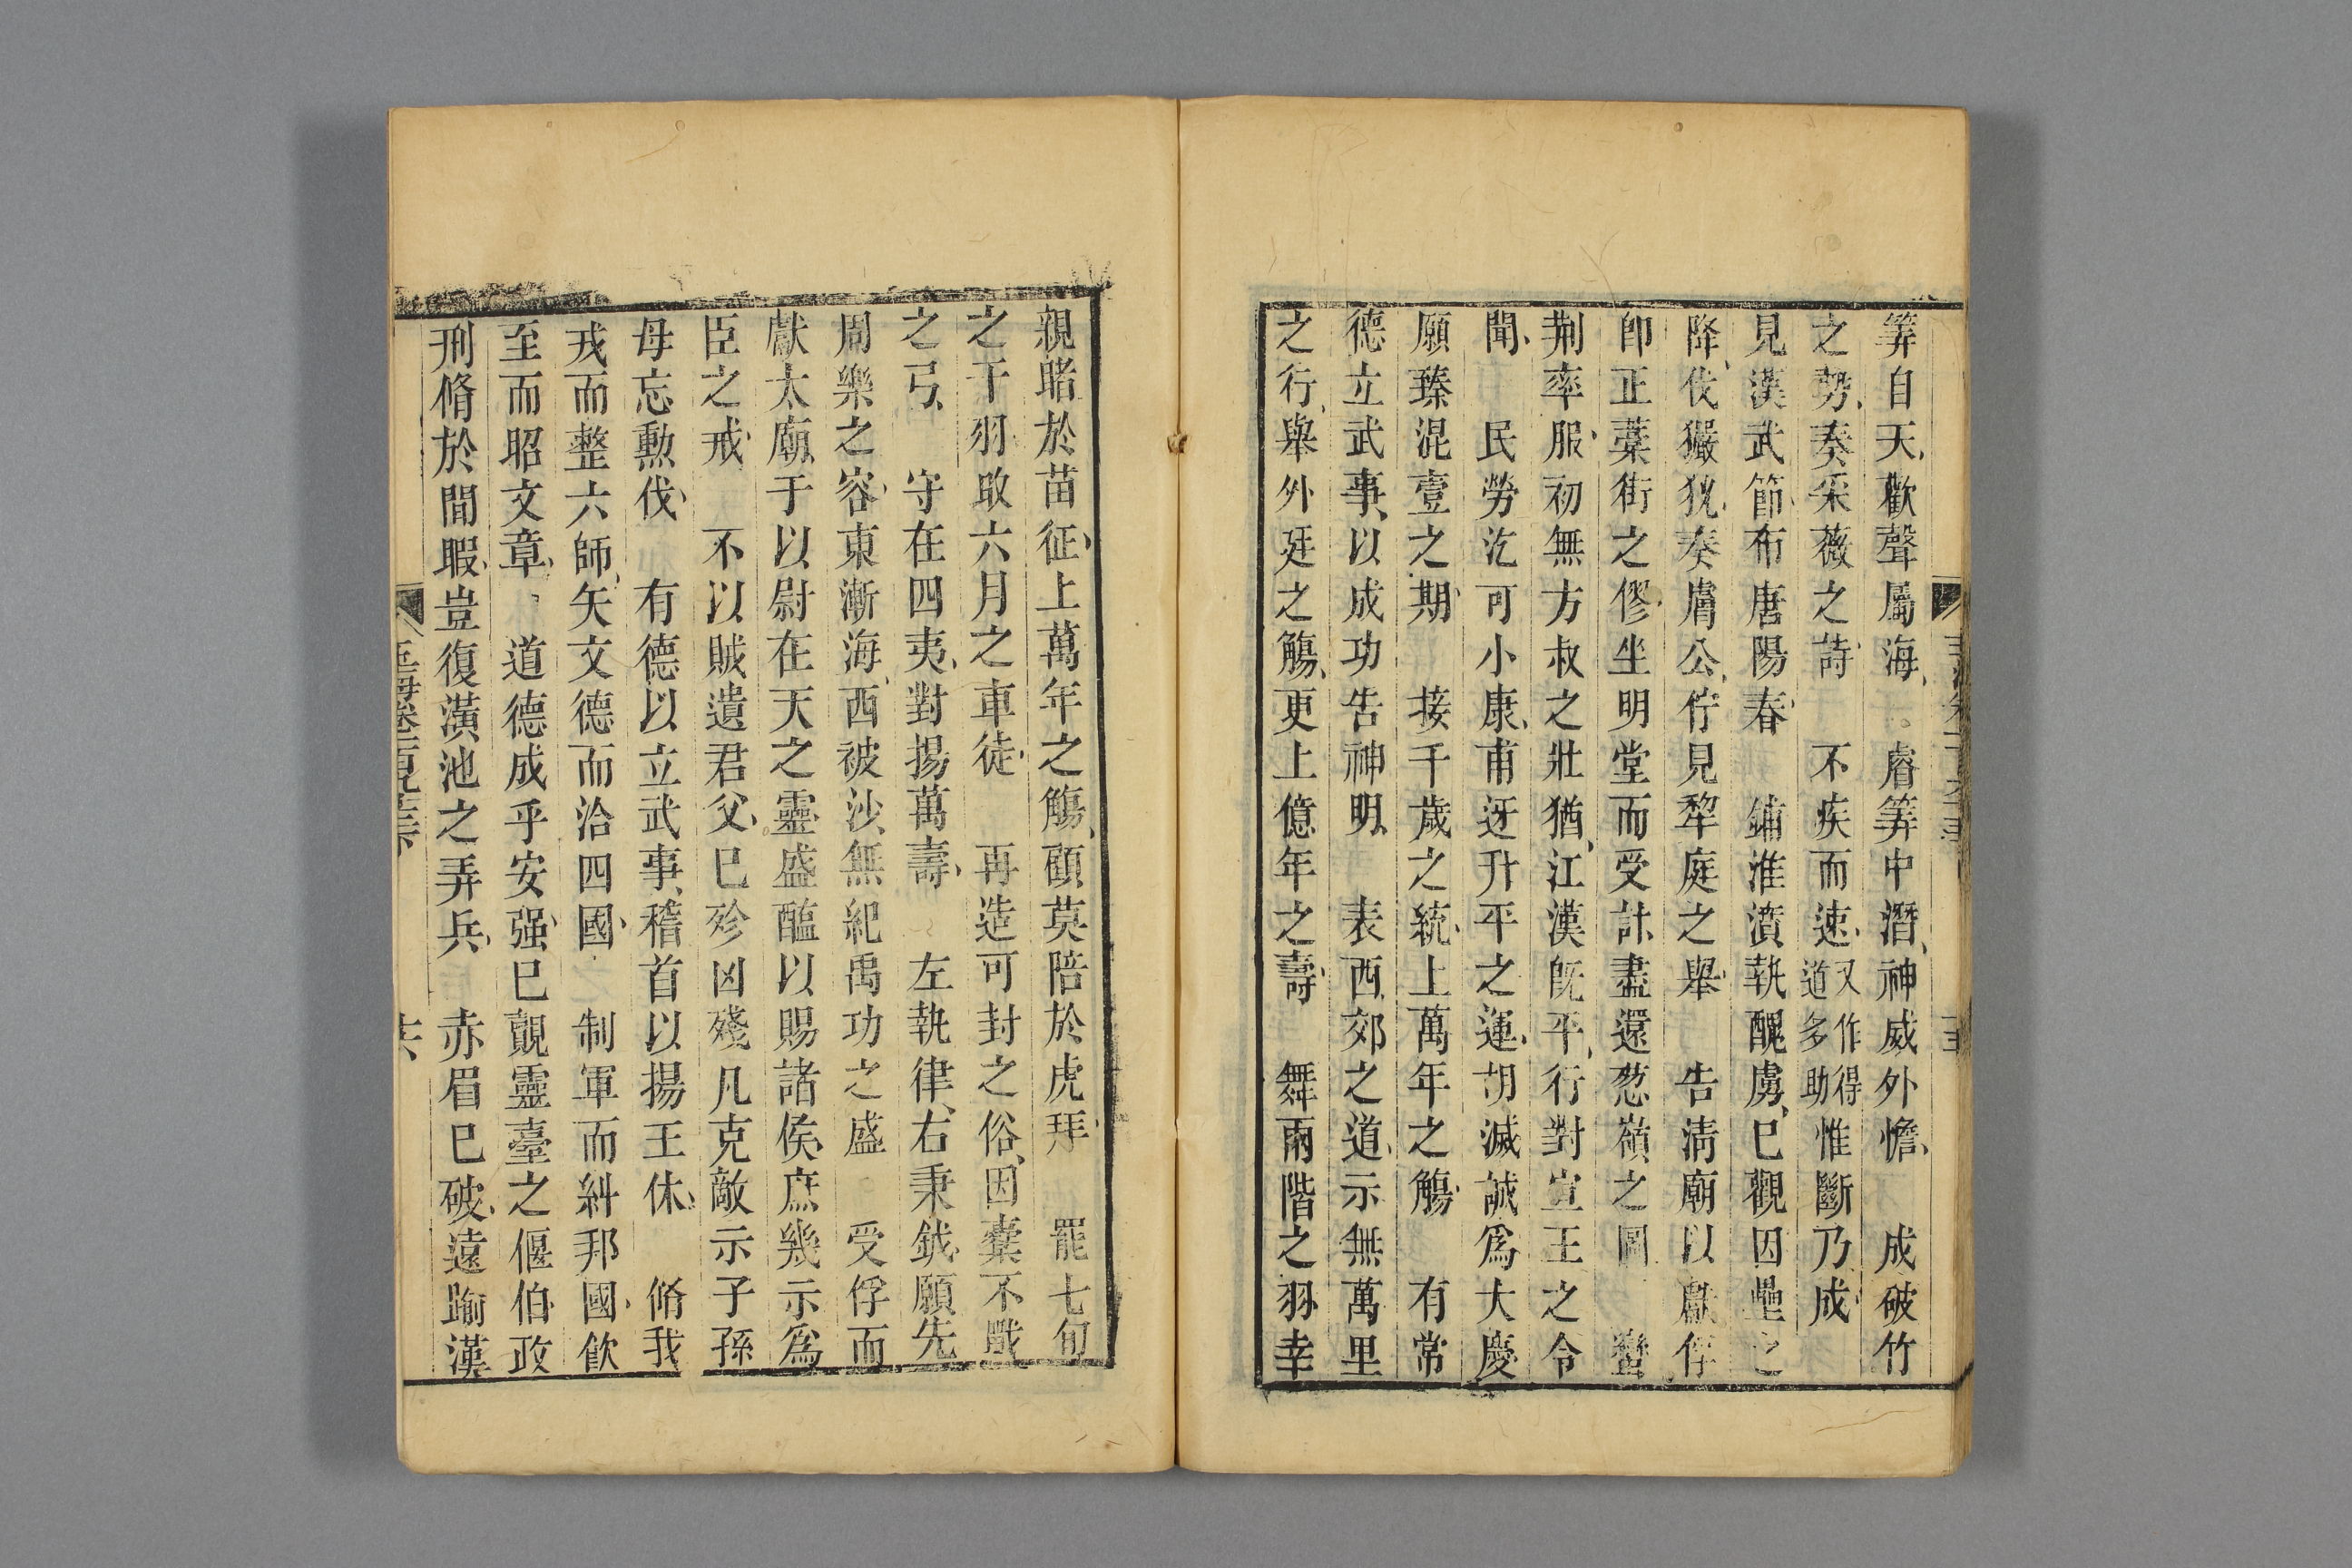 筭自天歡聲屬海　睿筭中潛神威外憺　成破竹
之勢奏采薇之詩　不疾而速又作得道多助惟斷乃成
見漢武節布唐陽春　鋪淮濆執醜虜巳觀因壘之
降伐玁狁奏膚公佇見犂庭之舉　告淸廟以獻俘
卽正藁街之僇坐明堂而受計盡還葱嶺之圖　蠻
荆率服初無方叔之壯猶江漢旣平行對宣王之令
聞　民勞汔可小康甫迓升平之運胡滅誠爲大慶
願臻混壹之期　接千歲之統上萬年之觴　有常
德立武事以成功告神明　表西郊之道示無萬里
之行舉外廷之觴更上億年之壽　舞兩階之羽幸
親睹於苗征上萬年之觴顧莫陪於虎拜　罷七旬
之干羽敢六月之車徒　再造可封之俗因櫜不戢
之弓　守在四夷對揚萬壽　左執律右秉鉞願先
周樂之容東漸海西被沙無紀禹功之盛　受俘而
獻太廟于以尉在天之靈盛醢以賜諸侯庶幾示爲
臣之戒　不以賊遺君父巳殄凶殘凡克敵示子孫
毋忘勲伐　有德以立武事稽首以揚王休　脩我
戎而整六師矢文德而洽四國　制軍而糾邦國飲
至而昭文章　道德成乎安强巳覿靈臺之偃伯政
刑脩於閒暇豈復潢池之弄兵　赤眉巳破遠踰漢